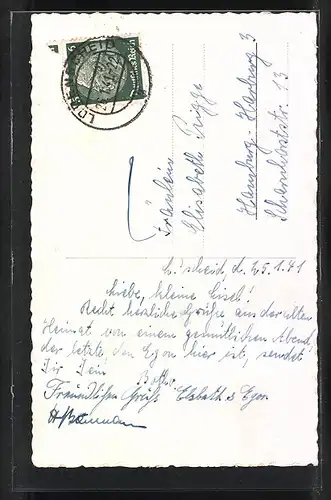 LÜDENSCHEID
Deutsches Reich
Fräulein
Elisabeth
Hamburg-Harburg 3
13
L.'scheid, d. 25.1.41
Liebe, kleine Liesel!
Recht herzliche Grüße aus der alten
Heimat von einem gemütlichen Abend,
der letzte, den Egon hier ist, sendet
Dir Dein
Freundlichen Gruß Elsbeth & Egon